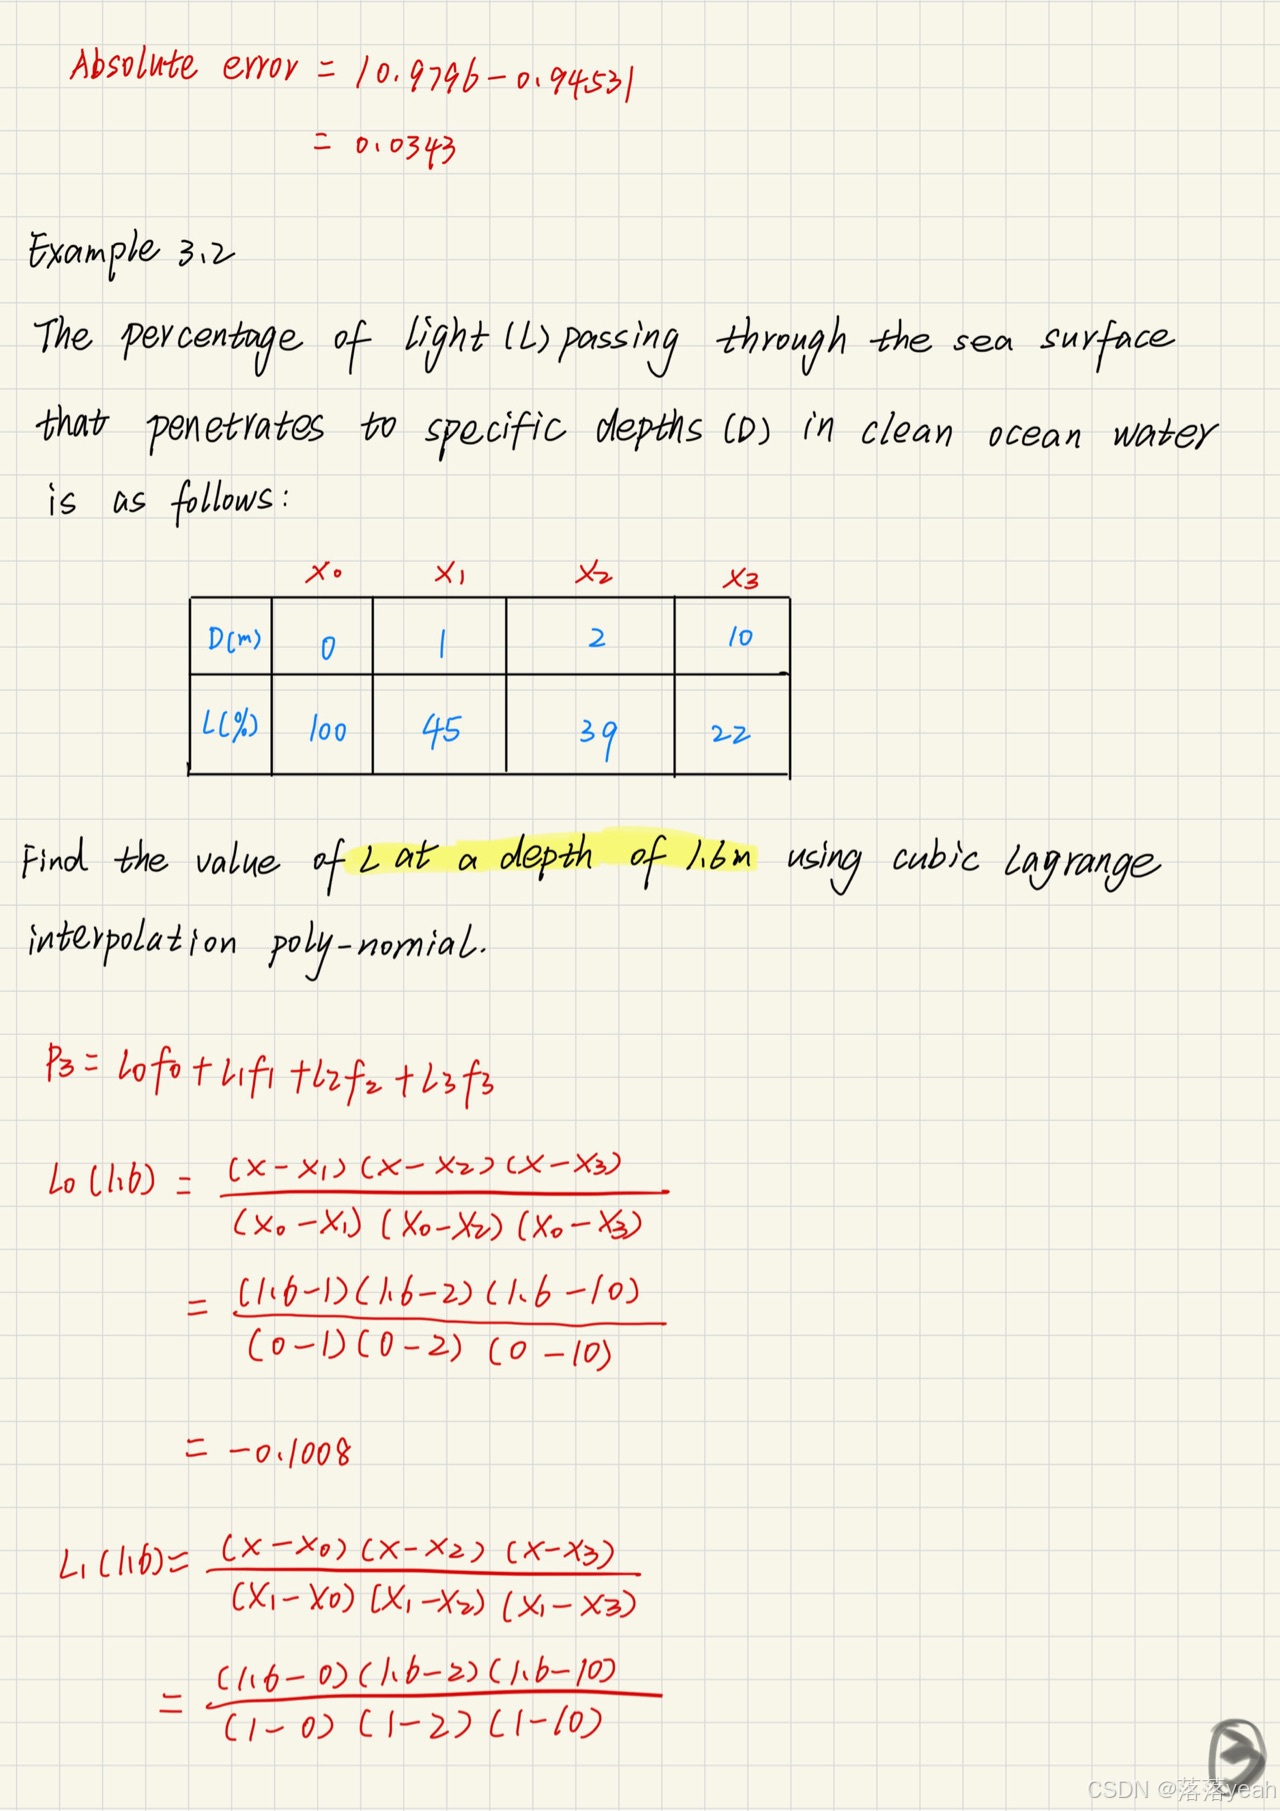 Absolute error = |0.9796 - 0.9453|
= 0.0343
Example 3.2
The percentage of light (L) passing through the sea surface
that penetrates to specific depths (D) in clean ocean water
is as follows:
x₀ x₁ x₂ x₃
D(m) 0 1 2 10
L(%) 100 45 39 22
Find the value of L at a depth of 1.6m using cubic Lagrange
interpolation poly-nomial.
P₃ = L₀f₀ + L₁f₁ + L₂f₂ + L₃f₃
L₀(1.6) = (x-x₁)(x-x₂)(x-x₃) / (x₀-x₁)(x₀-x₂)(x₀-x₃)
= (1.6-1)(1.6-2)(1.6-10) / (0-1)(0-2)(0-10)
= -0.1008
L₁(1.6) = (x-x₀)(x-x₂)(x-x₃) / (x₁-x₀)(x₁-x₂)(x₁-x₃)
= (1.6-0)(1.6-2)(1.6-10) / (1-0)(1-2)(1-10)
3
CSDN @落落yeah